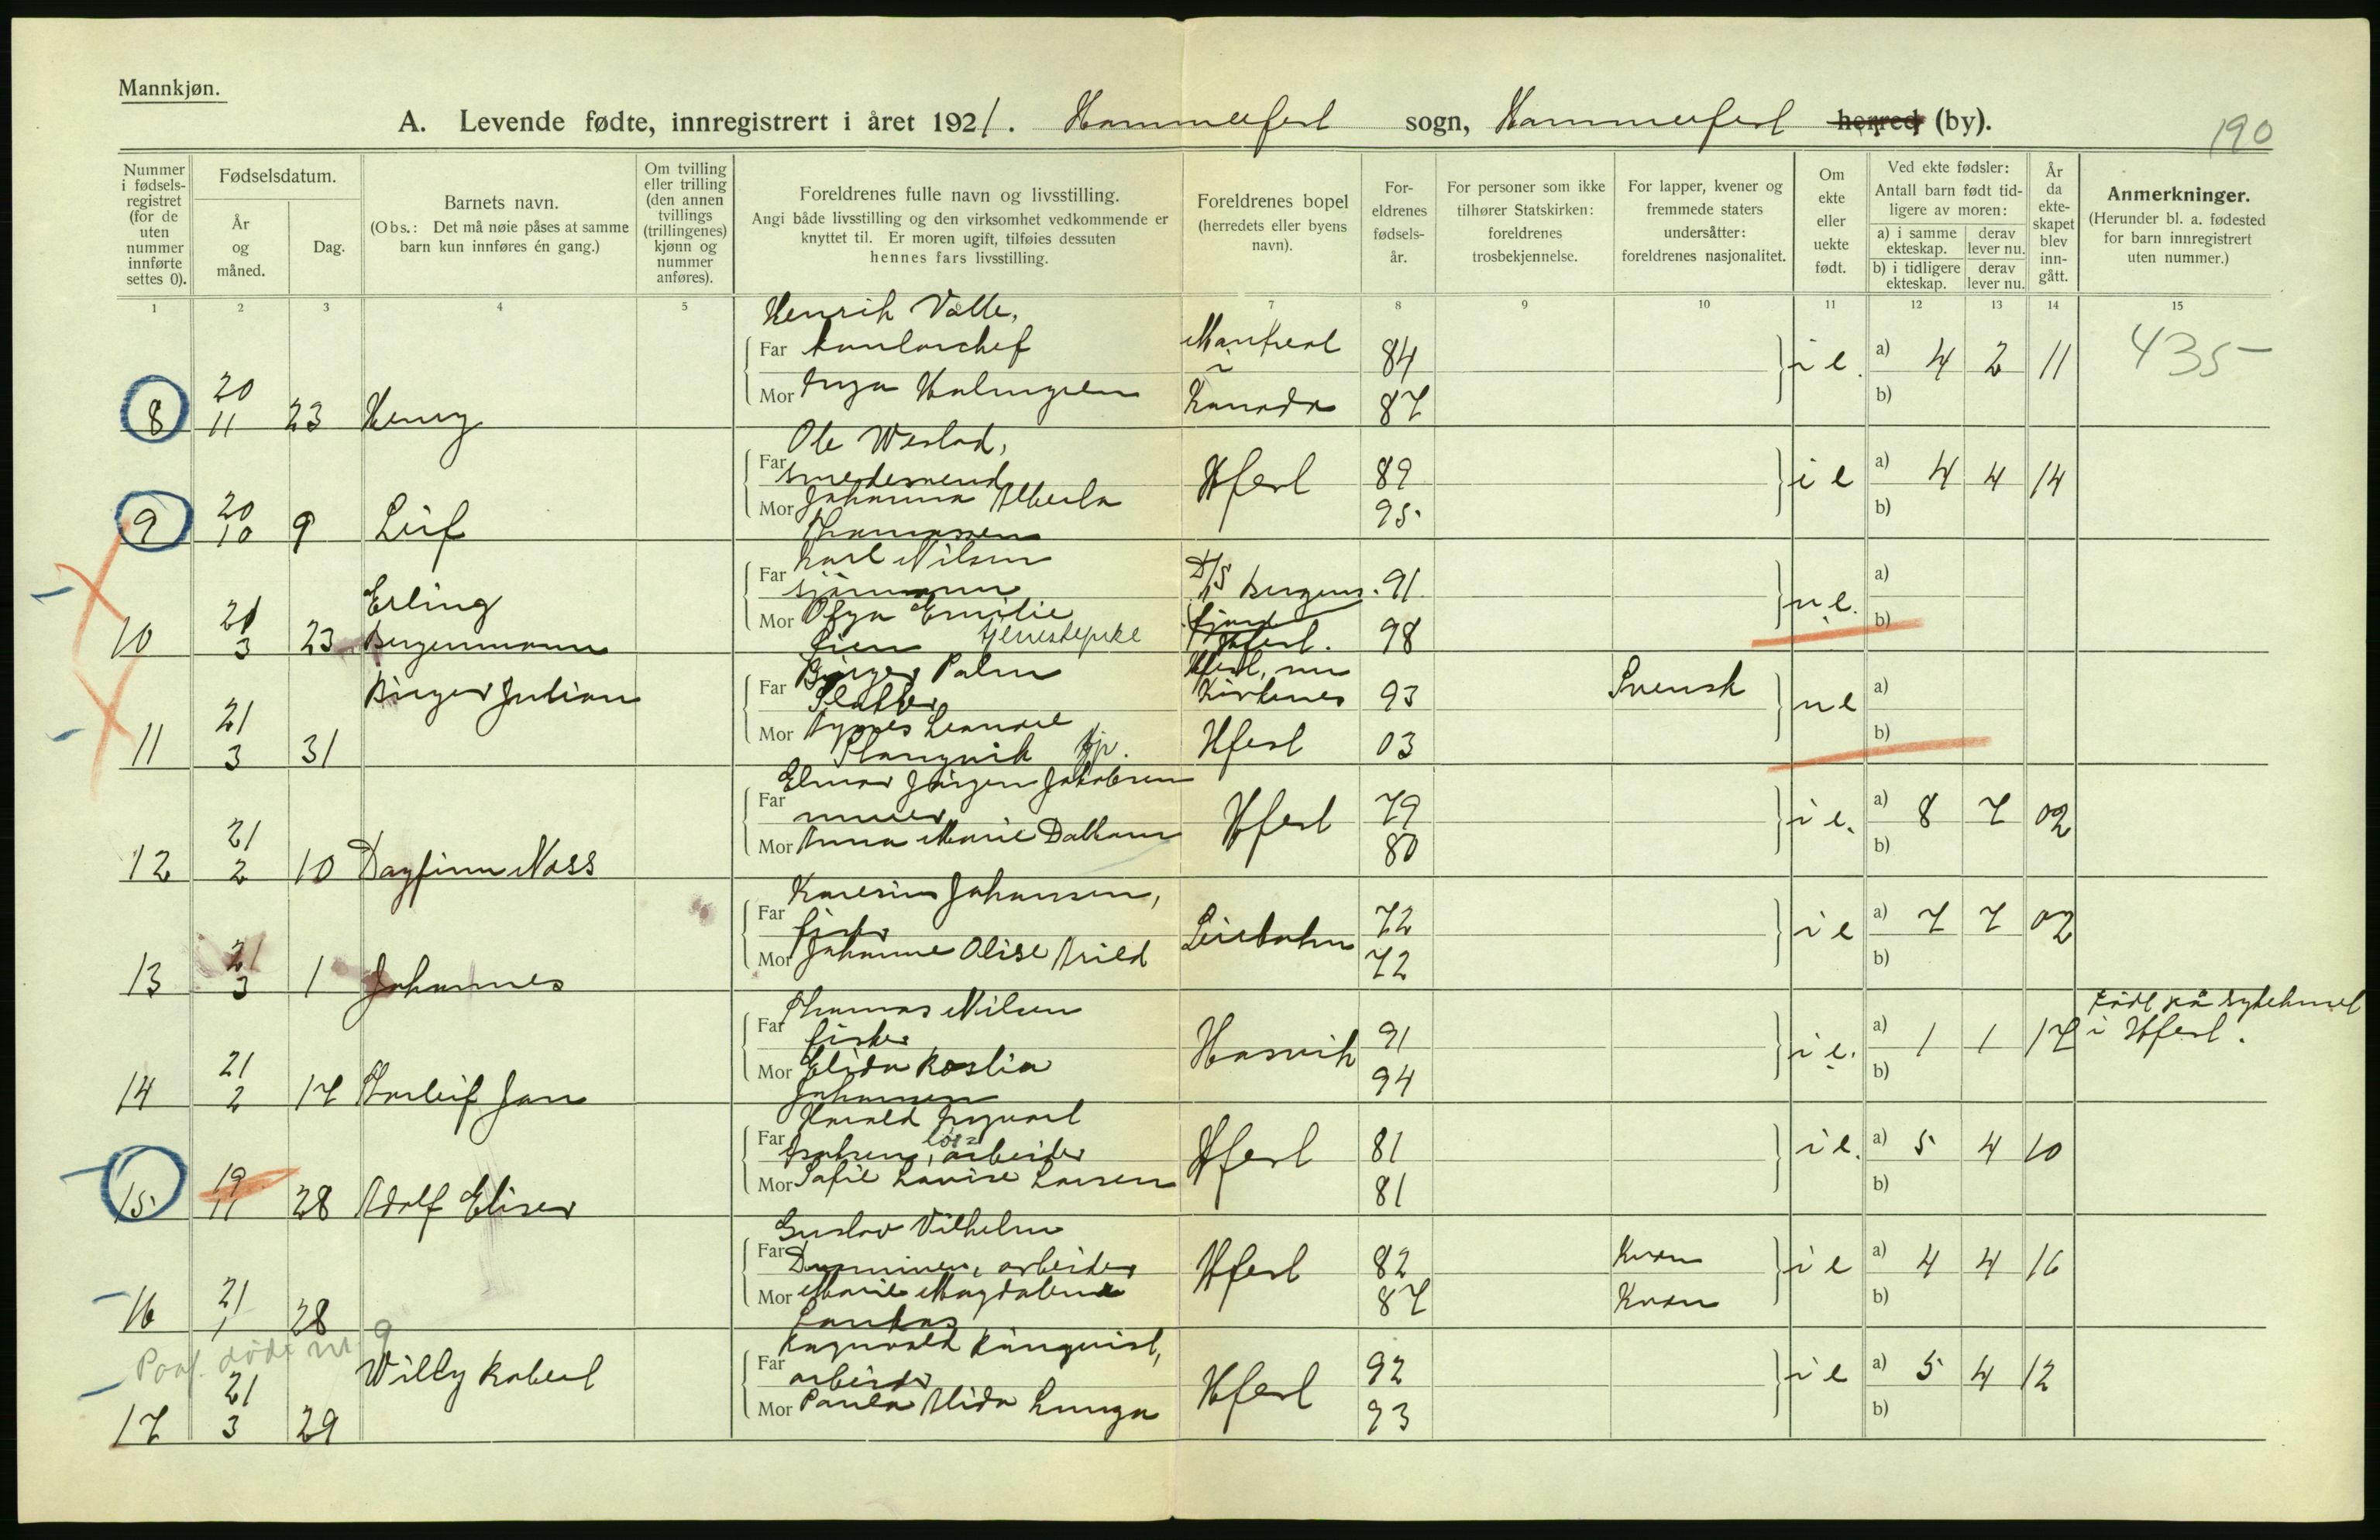 Mannkjøn.
A. Levende fødte, innregistrert i året 1921. Hammerfest sogn, Hammerfest herred (by).
190
Nummer i fødsels-registret (for de uten nummer innførte settes 0).
Fødselsdatum.
År og måned.
Dag.
Barnets navn.
(Obs.: Det må nøie påses at samme barn kun innføres én gang.)
Om tvilling eller trilling (den annen tvillings (trillingenes) kjønn og nummer anføres).
Foreldrenes fulle navn og livsstilling.
Angi både livsstilling og den virksomhet vedkommende er knyttet til. Er moren ugift, tilføies dessuten hennes fars livsstilling.
Foreldrenes bopel (herredets eller byens navn).
For-eldrenes fødsels-år.
For personer som ikke tilhører Statskirken: foreldrenes trosbekjennelse.
For lapper, kvener og fremmede staters undersåtter: foreldrenes nasjonalitet.
Om ekte eller uekte født.
Ved ekte fødsler: Antall barn født tid-ligere av moren:
a) i samme ekteskap. derav lever nu.
b) i tidligere ekteskap. derav lever nu.
År da ekte-skapet blev inn-gått.
Anmerkninger.
(Herunder bl. a. fødested for barn innregistrert uten nummer.)
1 2 3 4 5 6 7 8 9 10 11 12 13 14 15
Henrik Valle,
Far kontorchef Montreal 84 i e. a) 4 2 11 435
i
Mor Inga Holmgren Kanada 87 b)
8 20 11 23 Henry
Ole Westad,
Far smedesvend Hfest 89 i e a) 4 4 14
Mor Johanna Alberta 95. b)
Thomassen
9 20 10 9 Leif
Karl Nilsen
Far sjømann D/S Bergens. 91 u e. a)
Mor Olga Emilie fjord b)
Lien tjenestepike Hfest. 98
10 21 3 23 Erling Bergenmann
Birger Palm Hfest, nu
Far Kirkenes 93 Svensk u e a)
Mor Agnes Leonore b)
tjp. Hfest 03
11 21 3 31 Birger Julian
Elmar Jørgen Jakobsen
Far murer Hfest 79 i e. a) 8 7 02
Mor Anna Marie 80 b)
12 21 2 10 Dagfinn Næss
Johansen,
Far fisker 72 i e a) 7 7 02
Mor Johanne Olise Arild 72 b)
13 21 3 1 Johannes
Thomas Nilsen født på sykehuset
Far fisker Hasvik 91 i e. a) 1 1 17 i Hfest.
Mor Elida 94 b)
Johansen
14 21 2 17 Thorleif Jan
Harald
Far løs= arbeider Hfest 81 i e. a) 5 4 10
Mor Sofie Lovise Larsen 81 b)
15 19 11 28 Adolf Eliser
Gustav Vilhelm
Far arbeider Hfest 82 Kvæn i e a) 4 4 16
Mor Marie Magdalena 87 Kvæn b)
16 21 1 28
død nr 9
Ragnvald Rånquist,
Far arbeider Hfest 92 i e a) 5 4 12
Mor Paula Alida 93 b)
17 21 3 29 Willy Robert